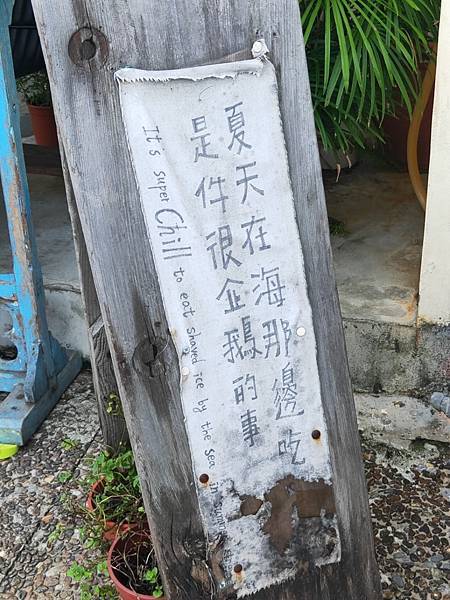 夏天在海那邊吃
是件很企鵝的事
It's super Chill to eat shaved ice by the sea